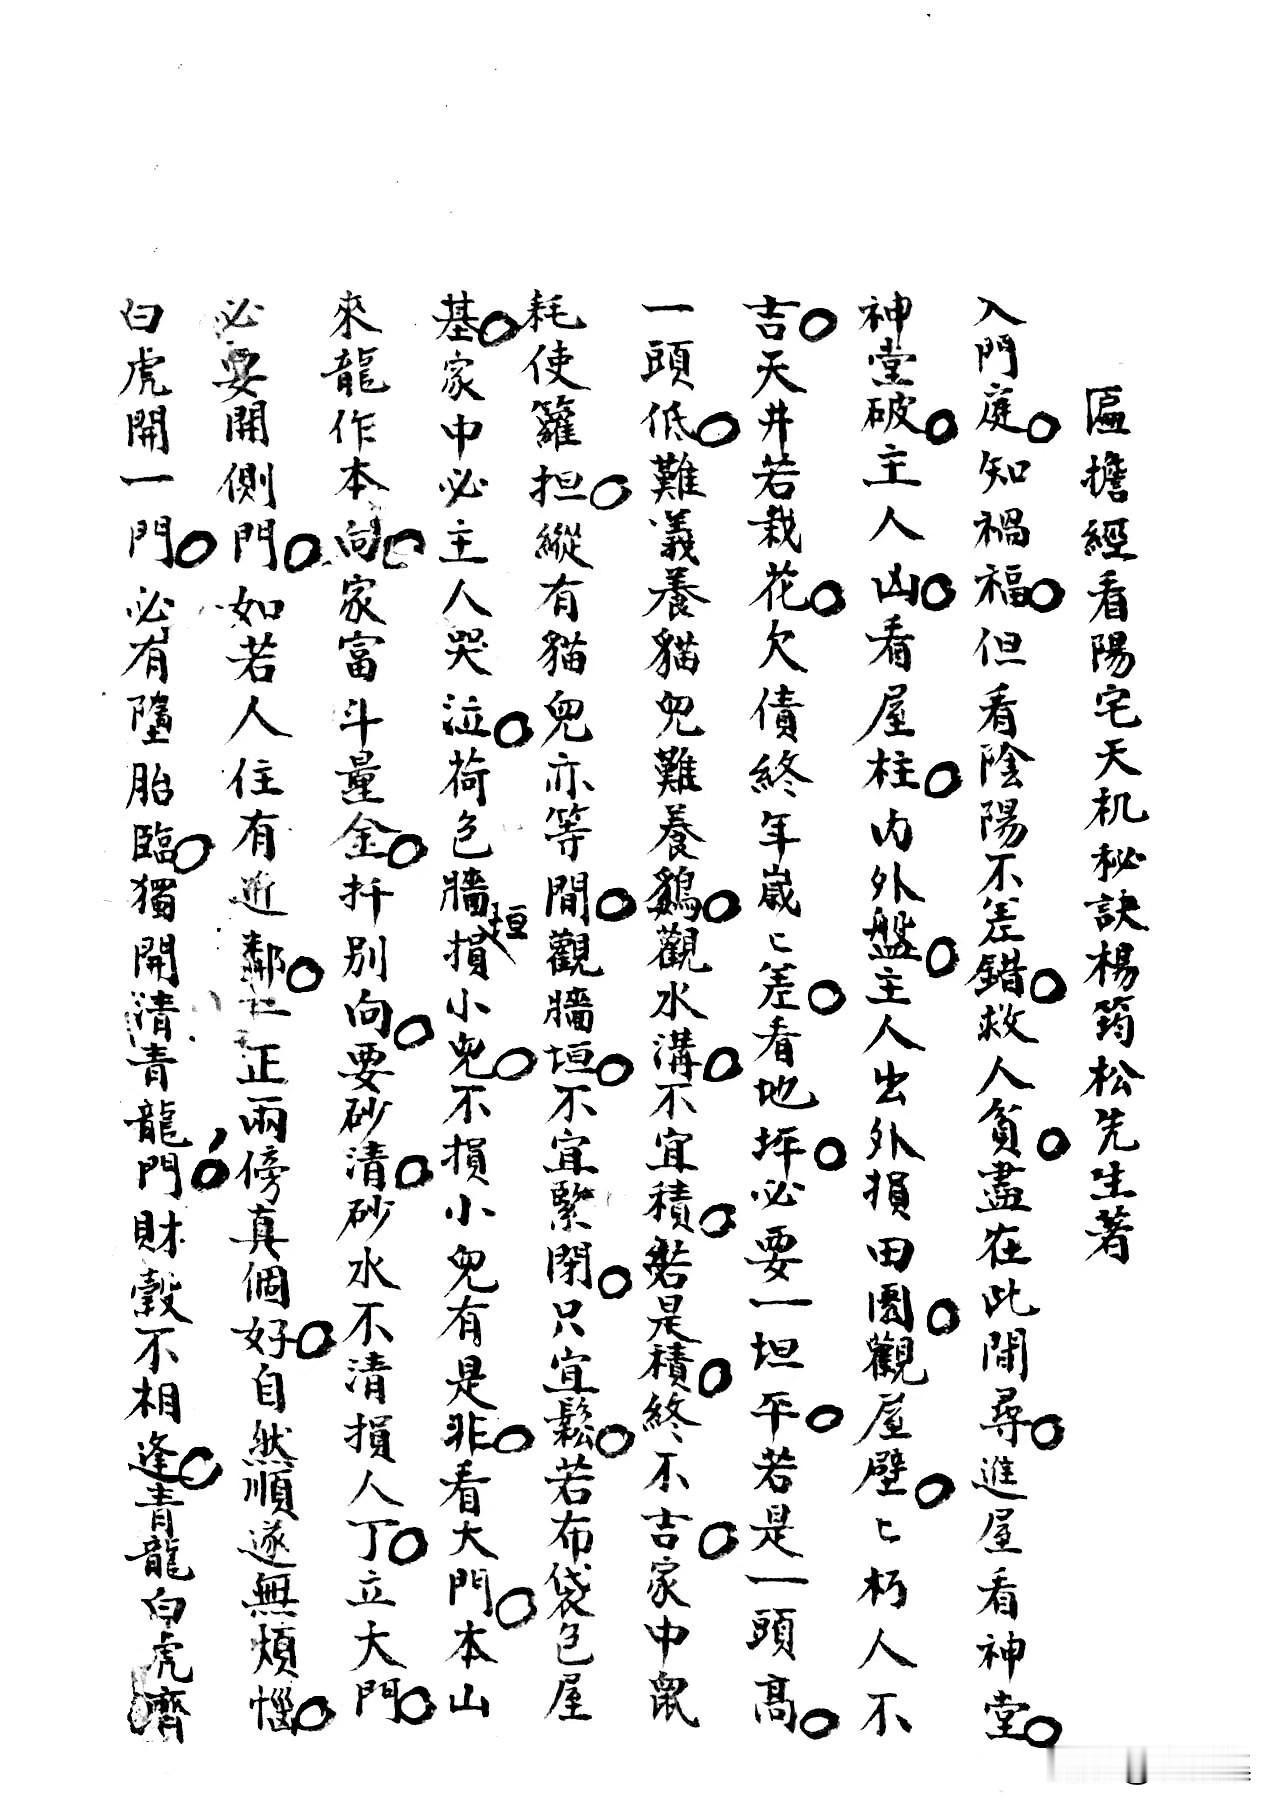 區擔經看陽宅天机秘訣楊筠松先生著
入門庭○知禍福○但看陰陽不差錯○救人貧○盡在此間尋○進屋看神堂○
神堂破○主人凶○看屋柱○内外盤○主人出外損田園○觀屋壁○〻朽人不
吉○天井若栽花○欠債終年歲〻差○看地坪○必要一坦平○若是一頭高○
一頭低○難義養貓兒難養鷄○觀水溝○不宜積○若是積○終不吉○家中鼠
耗使籮担○縱有貓兒亦等閒○觀牆垣○不宜緊閉○只宜鬆○若布袋包屋
基○家中必主人哭泣○荷包牆垣損小兒○不損小兒有是非○看大門○本山
來龍作本向○家富斗量金○扦別向○要砂清○砂水不清損人丁○立大門○
必要開側門○如若人住有近鄰○正兩傍真個好○自然順遂無煩惱○
白虎開一門○必有墮胎臨○獨開清青龍門○財穀不相逢○青龍白虎齊